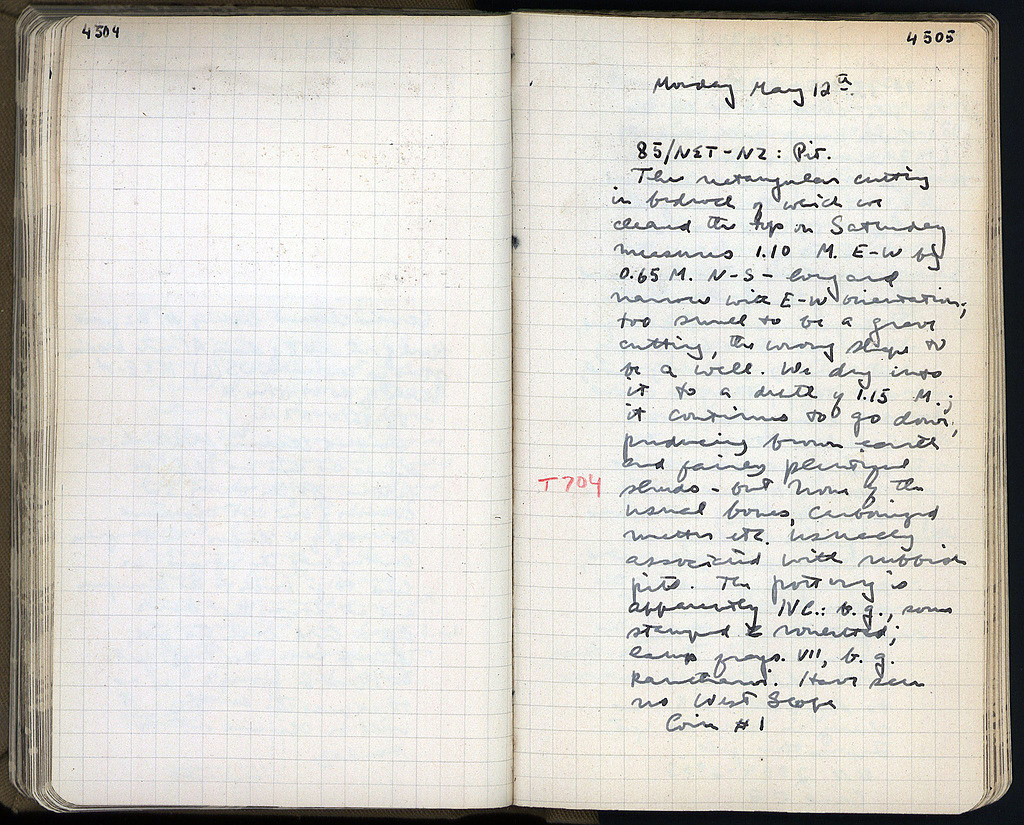 4504
4505
Monday May 12th.
85/ΝΣΤ-ΝΖ: Pit.
The rectangular cutting
in bedrock of which we
cleared the top on Saturday
measures 1.10 M. E-W by
0.65 M. N-S - long and
narrow with E-W orientation;
too small to be a grave
cutting, the wrong shape to
be a well. We dig into
it to a depth of 1.15 M.;
it continues to go down,
producing brown earth
and fairly plentiful
T 704
sherds - but none of the
usual bones, carbonized
matter etc. usually
associated with rubbish
pits. The pottery is
apparently IVC.: b.g., some
stamped & rouletted;
lamp frags. VII, b.g.
kantharoi. Have seen
no West Slope
Coin #1